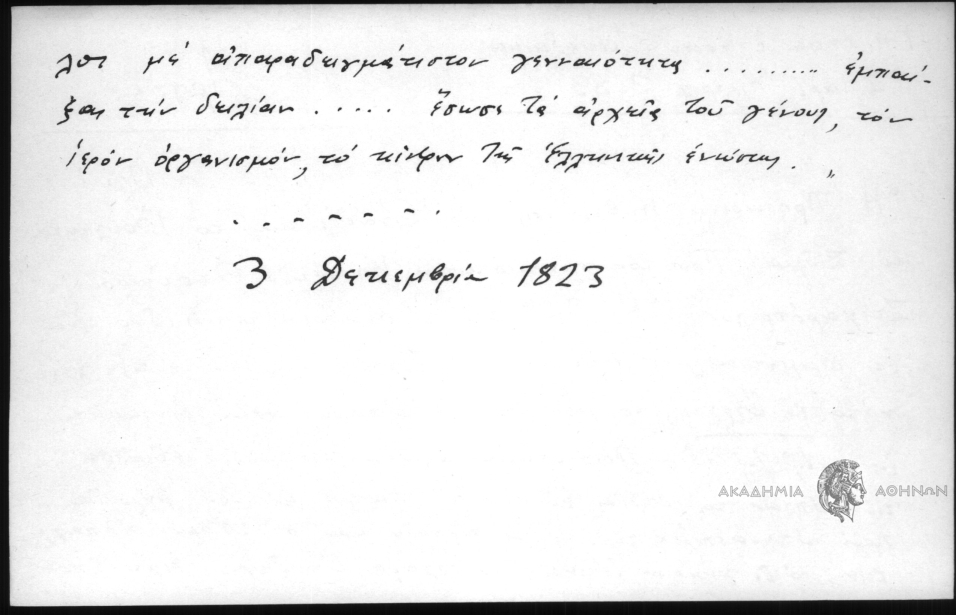 λος μέ ἀπαραδειγμάτιστον γενναιότητα ......... ἐμπαί-
ξας τήν δειλίαν ..... Ἔσωσε τά ἀρχεῖα τοῦ γένους, τόν
ἱερόν ὀργανισμόν, τό κέντρον τῆς Ἑλληνικῆς ἑνώσεως. „
. . - - - - .
3 Δεκεμβρίου 1823
ΑΚΑΔΗΜΙΑ ΑΘΗΝΩΝ